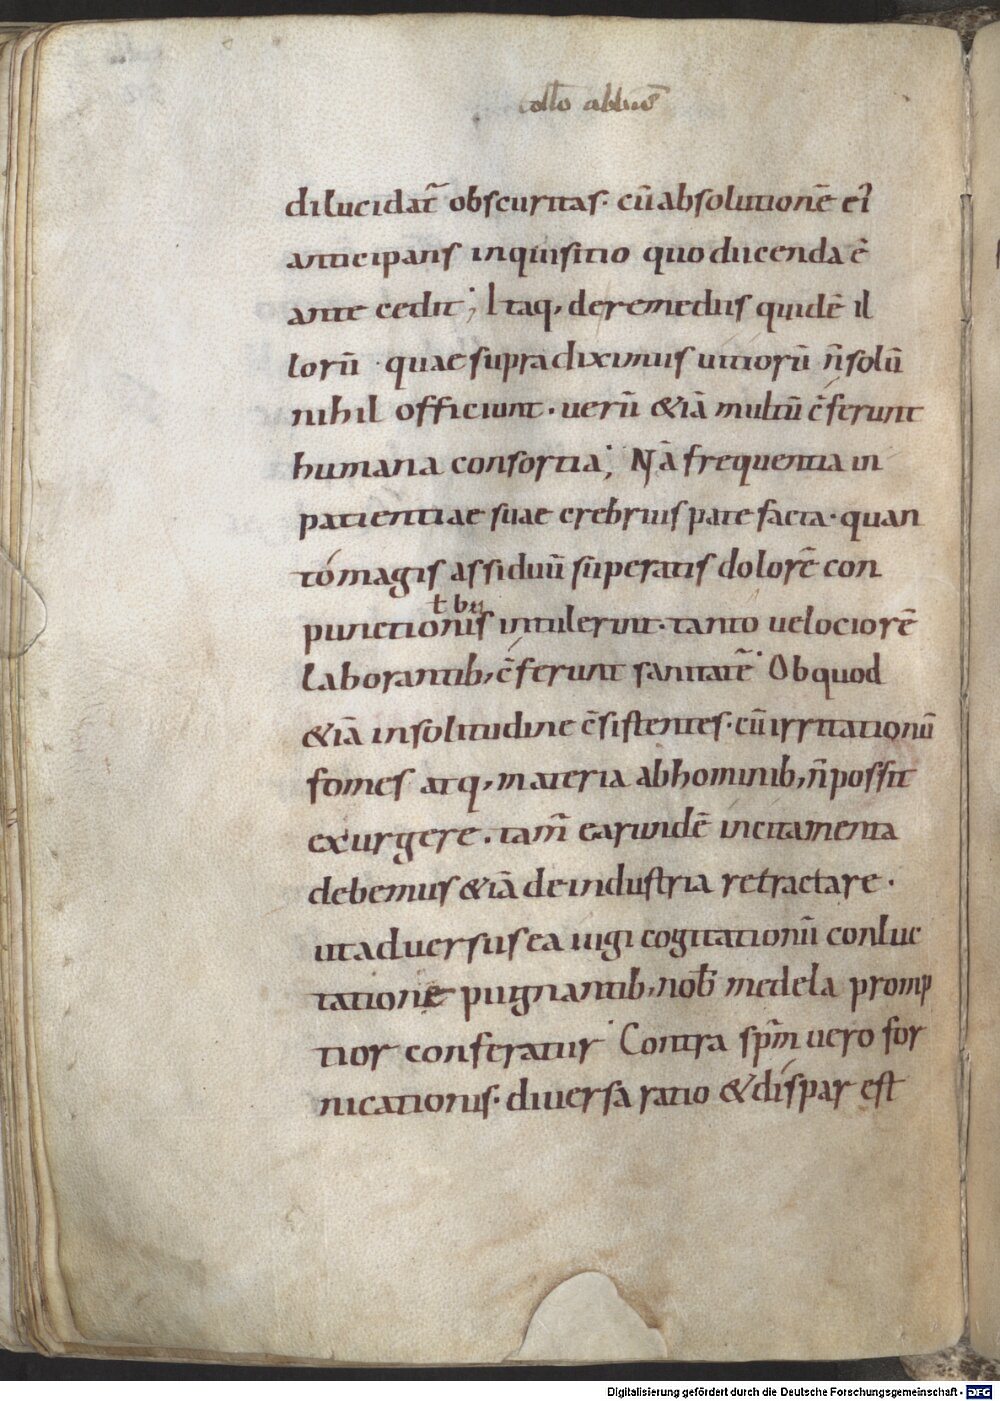 collo abbuo
dilucidat᷒ obscuritas· cū absolutionē ei᷒
anticipans inquisitio quo ducenda ē
ante cedit; Itaq, de remediis quidē il
lorū · quae supra diximus uitiorū n̄ solū
nihil officiunt· uerū &iā multū c̄ferunt
humana consortia; Nā frequentia in
patientiae suae crebrius pate facta· quan
to magis assiduū superatis dolorē con
ł bus
punctionis intulerint· tanto uelociorē
laborantib, c̄ferunt sanitatē· Ob quod
&iā in solitudine c̄sistentes· cū irritationū
fomes atq, materia ab hominib, n̄ possit
exurgere· tam̄ earundē incitamenta
debemus &iā de industria retractare·
ut aduersus ea iugi cogitationū conluc
tatione pugnantib, nob̄ medela promp
tior conferatur· Contra sp̄m uero for
nicationis· diuersa ratio & dispar est
Digitalisierung gefördert durch die Deutsche Forschungsgemeinschaft - DFG